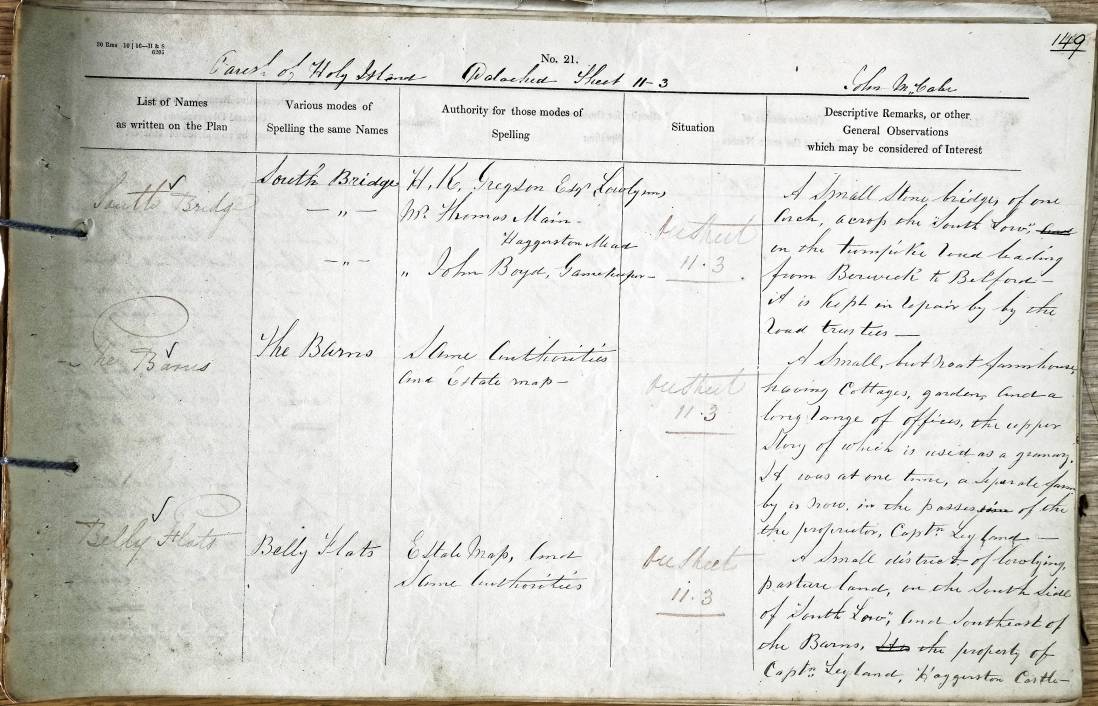 149
30 Rms 10 | 16—H & S
6205
No. 21.
Parish of Holy Island Detached Sheet 11-3 John McCabe
List of Names
as written on the Plan
Various modes of
Spelling the same Names
Authority for those modes of
Spelling
Situation
Descriptive Remarks, or other
General Observations
which may be considered of Interest
South Bridge
South Bridge
— „ —
— „ —
H. K. Gregson Esqr Lowlynn,
Mr. Thomas Main
Haggerston Mead
„ John Boyd, Gamekeeper—
On Sheet
11.3
A Small Stone bridges of one
Arch, across the "South Low",
on the turnpike road leading
from Berwick to Belford—
it is kept in repair by by the
road trusties—
The Barns
The Barns
Same Authorities
and Estate map—
On Sheet
11.3
A Small, but neat farmhouse,
having Cottages, garden, and a
long range of offices, the upper
Story of which is used as a granary.
It was at one time, a seperate farm
by is now, in the possession of the
the proprietor, Captn Leyland—
Belly Flats
Belly Flats
Estate Map, and
Same Authorities
On Sheet
11.3
A Small district of lowlying,
pasture land, on the South Side
of "South Low", and Southeast of
the Barns. the property of
Captn Leyland, Haggerston Castle—